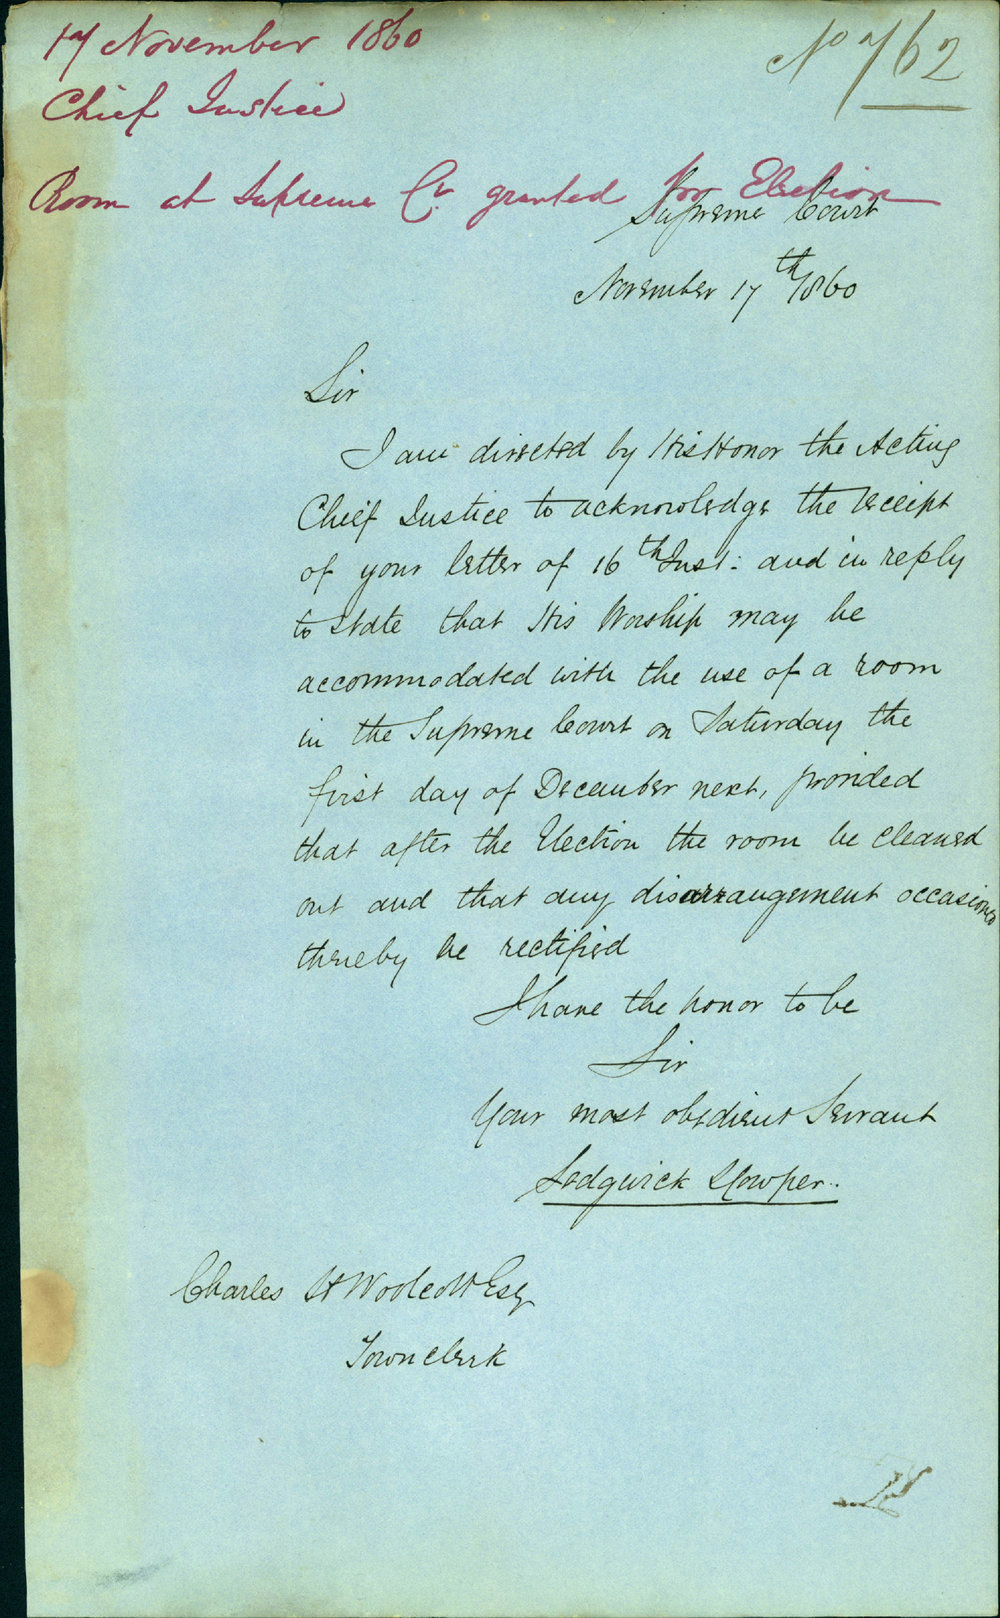 17 November 1860
No 762
Chief Justice
Room at Supreme Ct. granted for Election
Supreme Court
November 17th 1860
Sir
I am directed by His Honor the Acting
Chief Justice to acknowledge the receipt
of your letter of 16th Inst: and in reply
to state that His Worship may be
accommodated with the use of a room
in the Supreme Court on Saturday the
first day of December next, provided
that after the Election the room be cleaned
out and that any disarrangement occasioned
thereby be rectified
I have the honor to be
Sir
Your most obedient Servant
Sedgwick S Cowper.
Charles H Woolcott Esq
Town Clerk